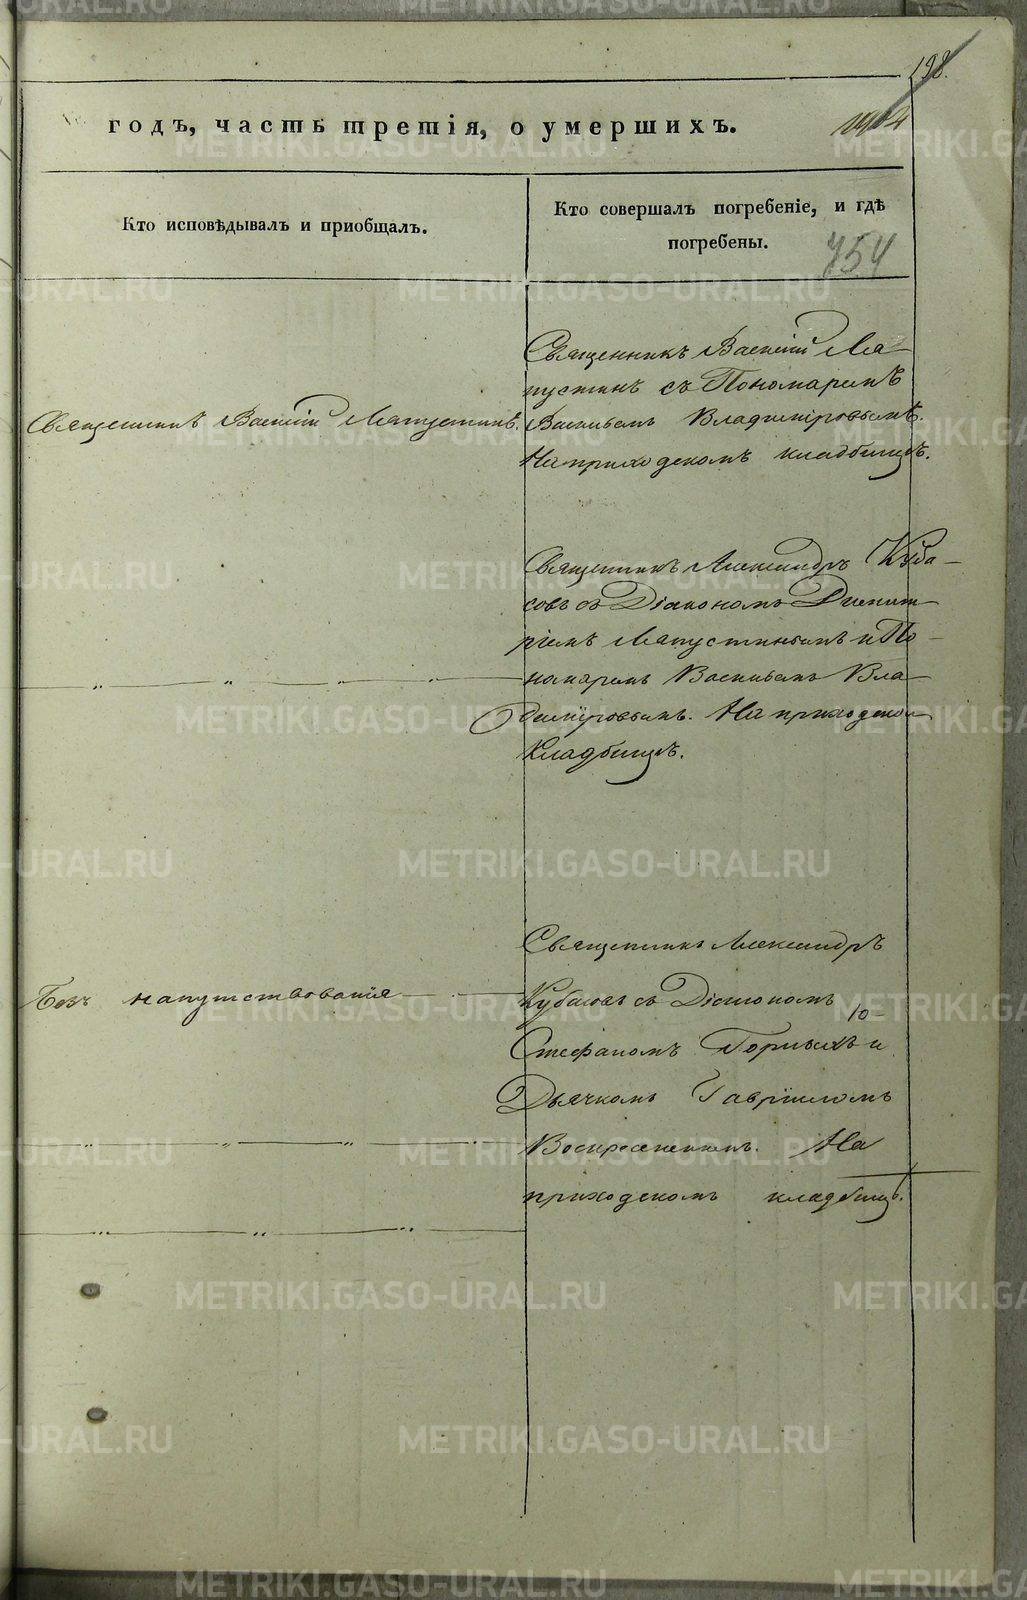 198.
годъ, часть третія, о умершихъ.
Кто исповѣдывалъ и приобщалъ.
Кто совершалъ погребеніе, и гдѣ
погребены.
754
Священникъ Василій Ма-
пустинъ съ Пономаремъ
Священникъ Василій Мапустинъ.
Васильемъ Владиміровымъ.
На приходскомъ кладбищѣ.
Священникъ Александръ Куба-
совъ съ Діакономъ Димит-
ріемъ Мапустинымъ и По-
номаремъ Васильемъ Вла-
диміровымъ. На приходском
Кладбищѣ.
Священникъ Александръ
Безъ напутствованія
Кубасовъ съ Діакономъ
Стефаномъ Горныхъ и
Дьячкомъ Гавріиломъ
Воскресенскимъ. На
приходскомъ кладбищѣ.
METRIKI.GASO-URAL.RU